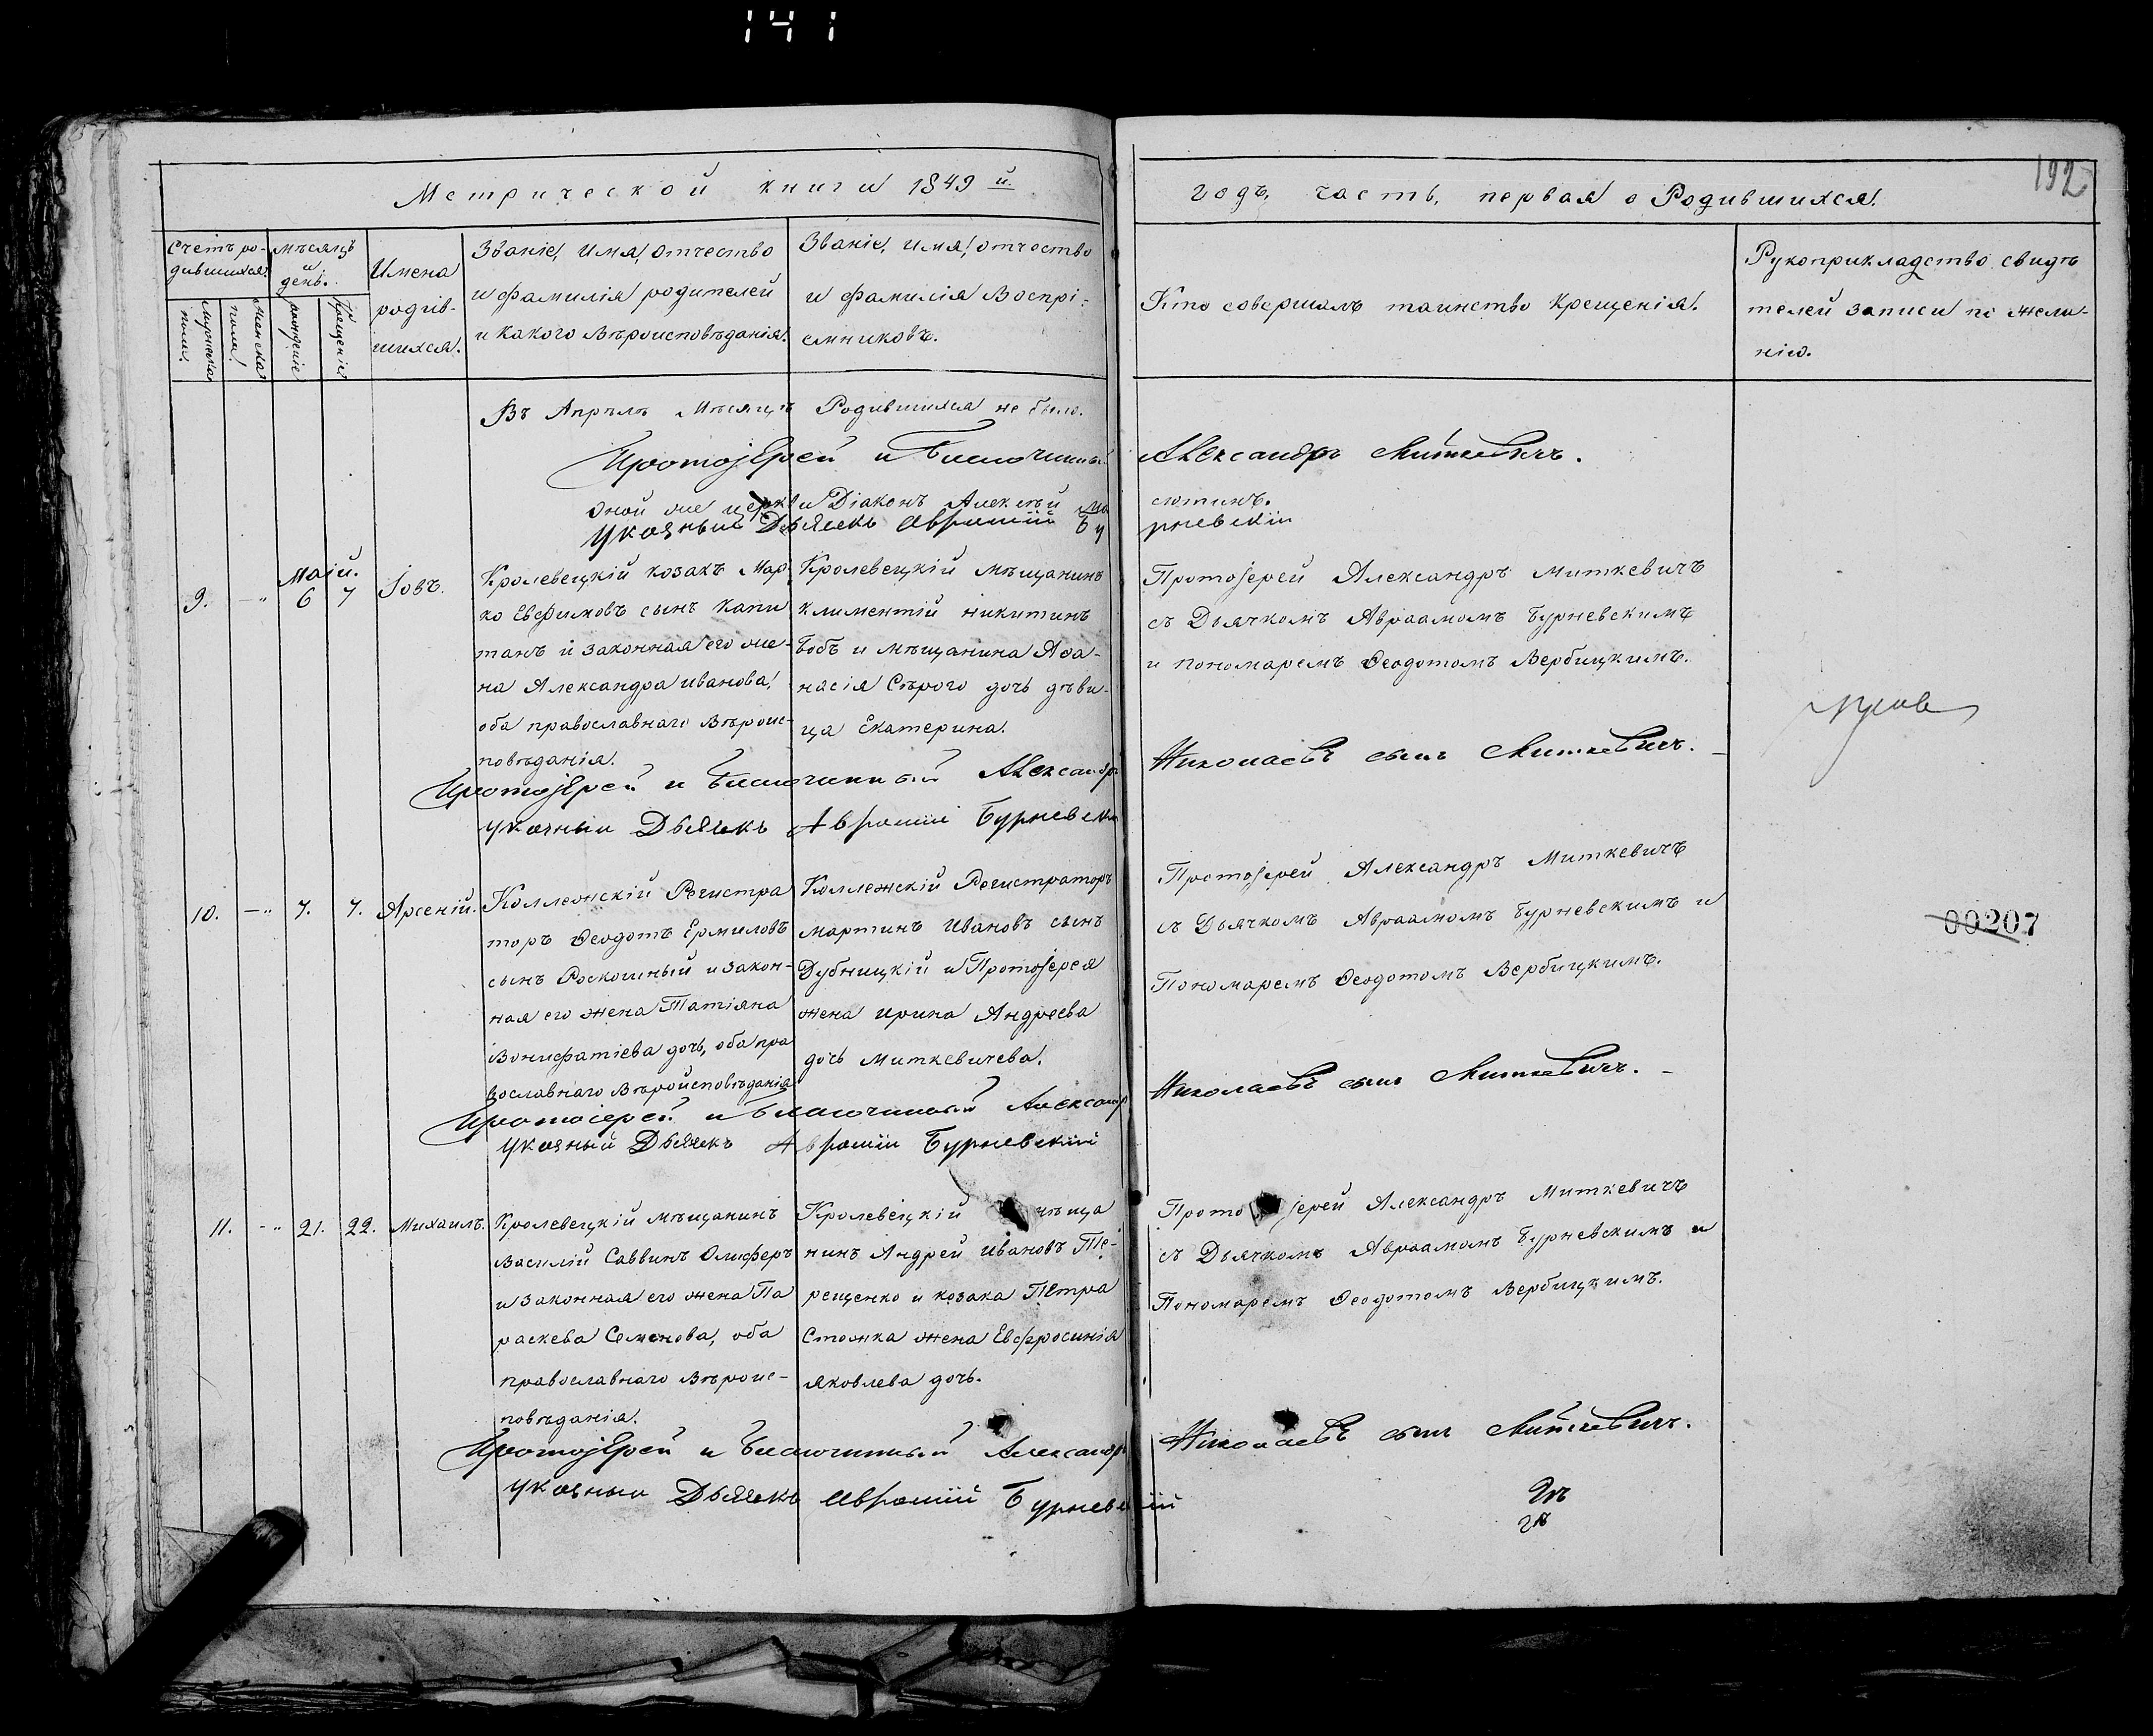 141
192
Метрической книги 1849 й.
годъ, часть, первая о Родившихся.
Счетъ ро-
дившихся.
мужеска
пола.
женска
пола.
мѣсяцъ
и
день.
рожденіе
крещеніе
Имена
родив-
шихся.
Званіе, Имя, отчество
и фамилія родителей
и какого Вѣроисповѣданія.
Званіе, имя, отчество
и фамилія Воспрі-
емниковъ.
Кто совершалъ таинство Крещенія.
Рукоприкладство свидѣ
телей записи по жела-
нію.
Въ Апрѣлѣ Мѣсяцѣ Родившихся не было.
Протоіерей и Благочинный Александръ Миткевичъ.
оной же церкви Діаконъ Алексѣй
Указный Дьячекъ Аврамій Бурневскій
Маій.
9. — „ 6 7 Іовъ.
Кролевецкій козакъ Мар
ко Евфимовъ сынъ Капи
танъ и законная его же-
на Александра иванова,
оба православнаго Вѣроис-
повѣданія.
Кролевецкій мѣщанинъ
климентій никитинъ
Бобъ и мѣщанина Афа-
насія Сѣрого дочь дѣви-
ца Екатерина.
Протоіерей Александръ Миткевичъ
съ Дьячкомъ Авраамомъ Бурневскимъ
и пономаремъ Феодотомъ Вербицкимъ.
Протоіерей и Благочинный Александръ Николаевъ сынъ Миткевичъ.
указный Дьячекъ Аврамій Бурневскій
10. — „ 7. 7. Арсеній.
Коллежскій Регистра
торъ Феодотъ Ермиловъ
сынъ Роскошный и закон-
ная его жена Татіяна
Вонифатіева дочь, оба пра
вославнаго Вѣроисповѣданія
Коллежскій Регистраторъ
мартинъ Ивановъ сынъ
Дубницкій и Протоіерея
жена ирина Андреева
дочь миткевичева.
Протоіерей Александръ Миткевичъ
съ Дьячкомъ Авраамомъ Бурневскимъ и
Пономаремъ Феодотомъ Вербицкимъ.
00207
Протоіерей и Благочинный Александръ Николаевъ сынъ Миткевичъ.
указный Дьячекъ Аврамій Бурневскій
11. - „ 21. 22. Михаилъ.
Кролевецкій мѣщанинъ
Василій Саввинъ Олиферъ
и законная его жена Па
раскева Семенова, оба
православнаго Вѣроис-
повѣданія.
Кролевецкій мѣща
нинъ Андрей Ивановъ Те-
рещенко и козака Петра
Стожка жена Евфросинія
яковлева дочь.
Протоіерей Александръ Миткевичъ
съ Дьячкомъ Авраамомъ Бурневскимъ и
Пономаремъ Феодотомъ Вербицкимъ.
Протоіерей и Благочинный Александръ Николаевъ сынъ Миткевичъ.
указный Дьячекъ Аврамій Бурневскій